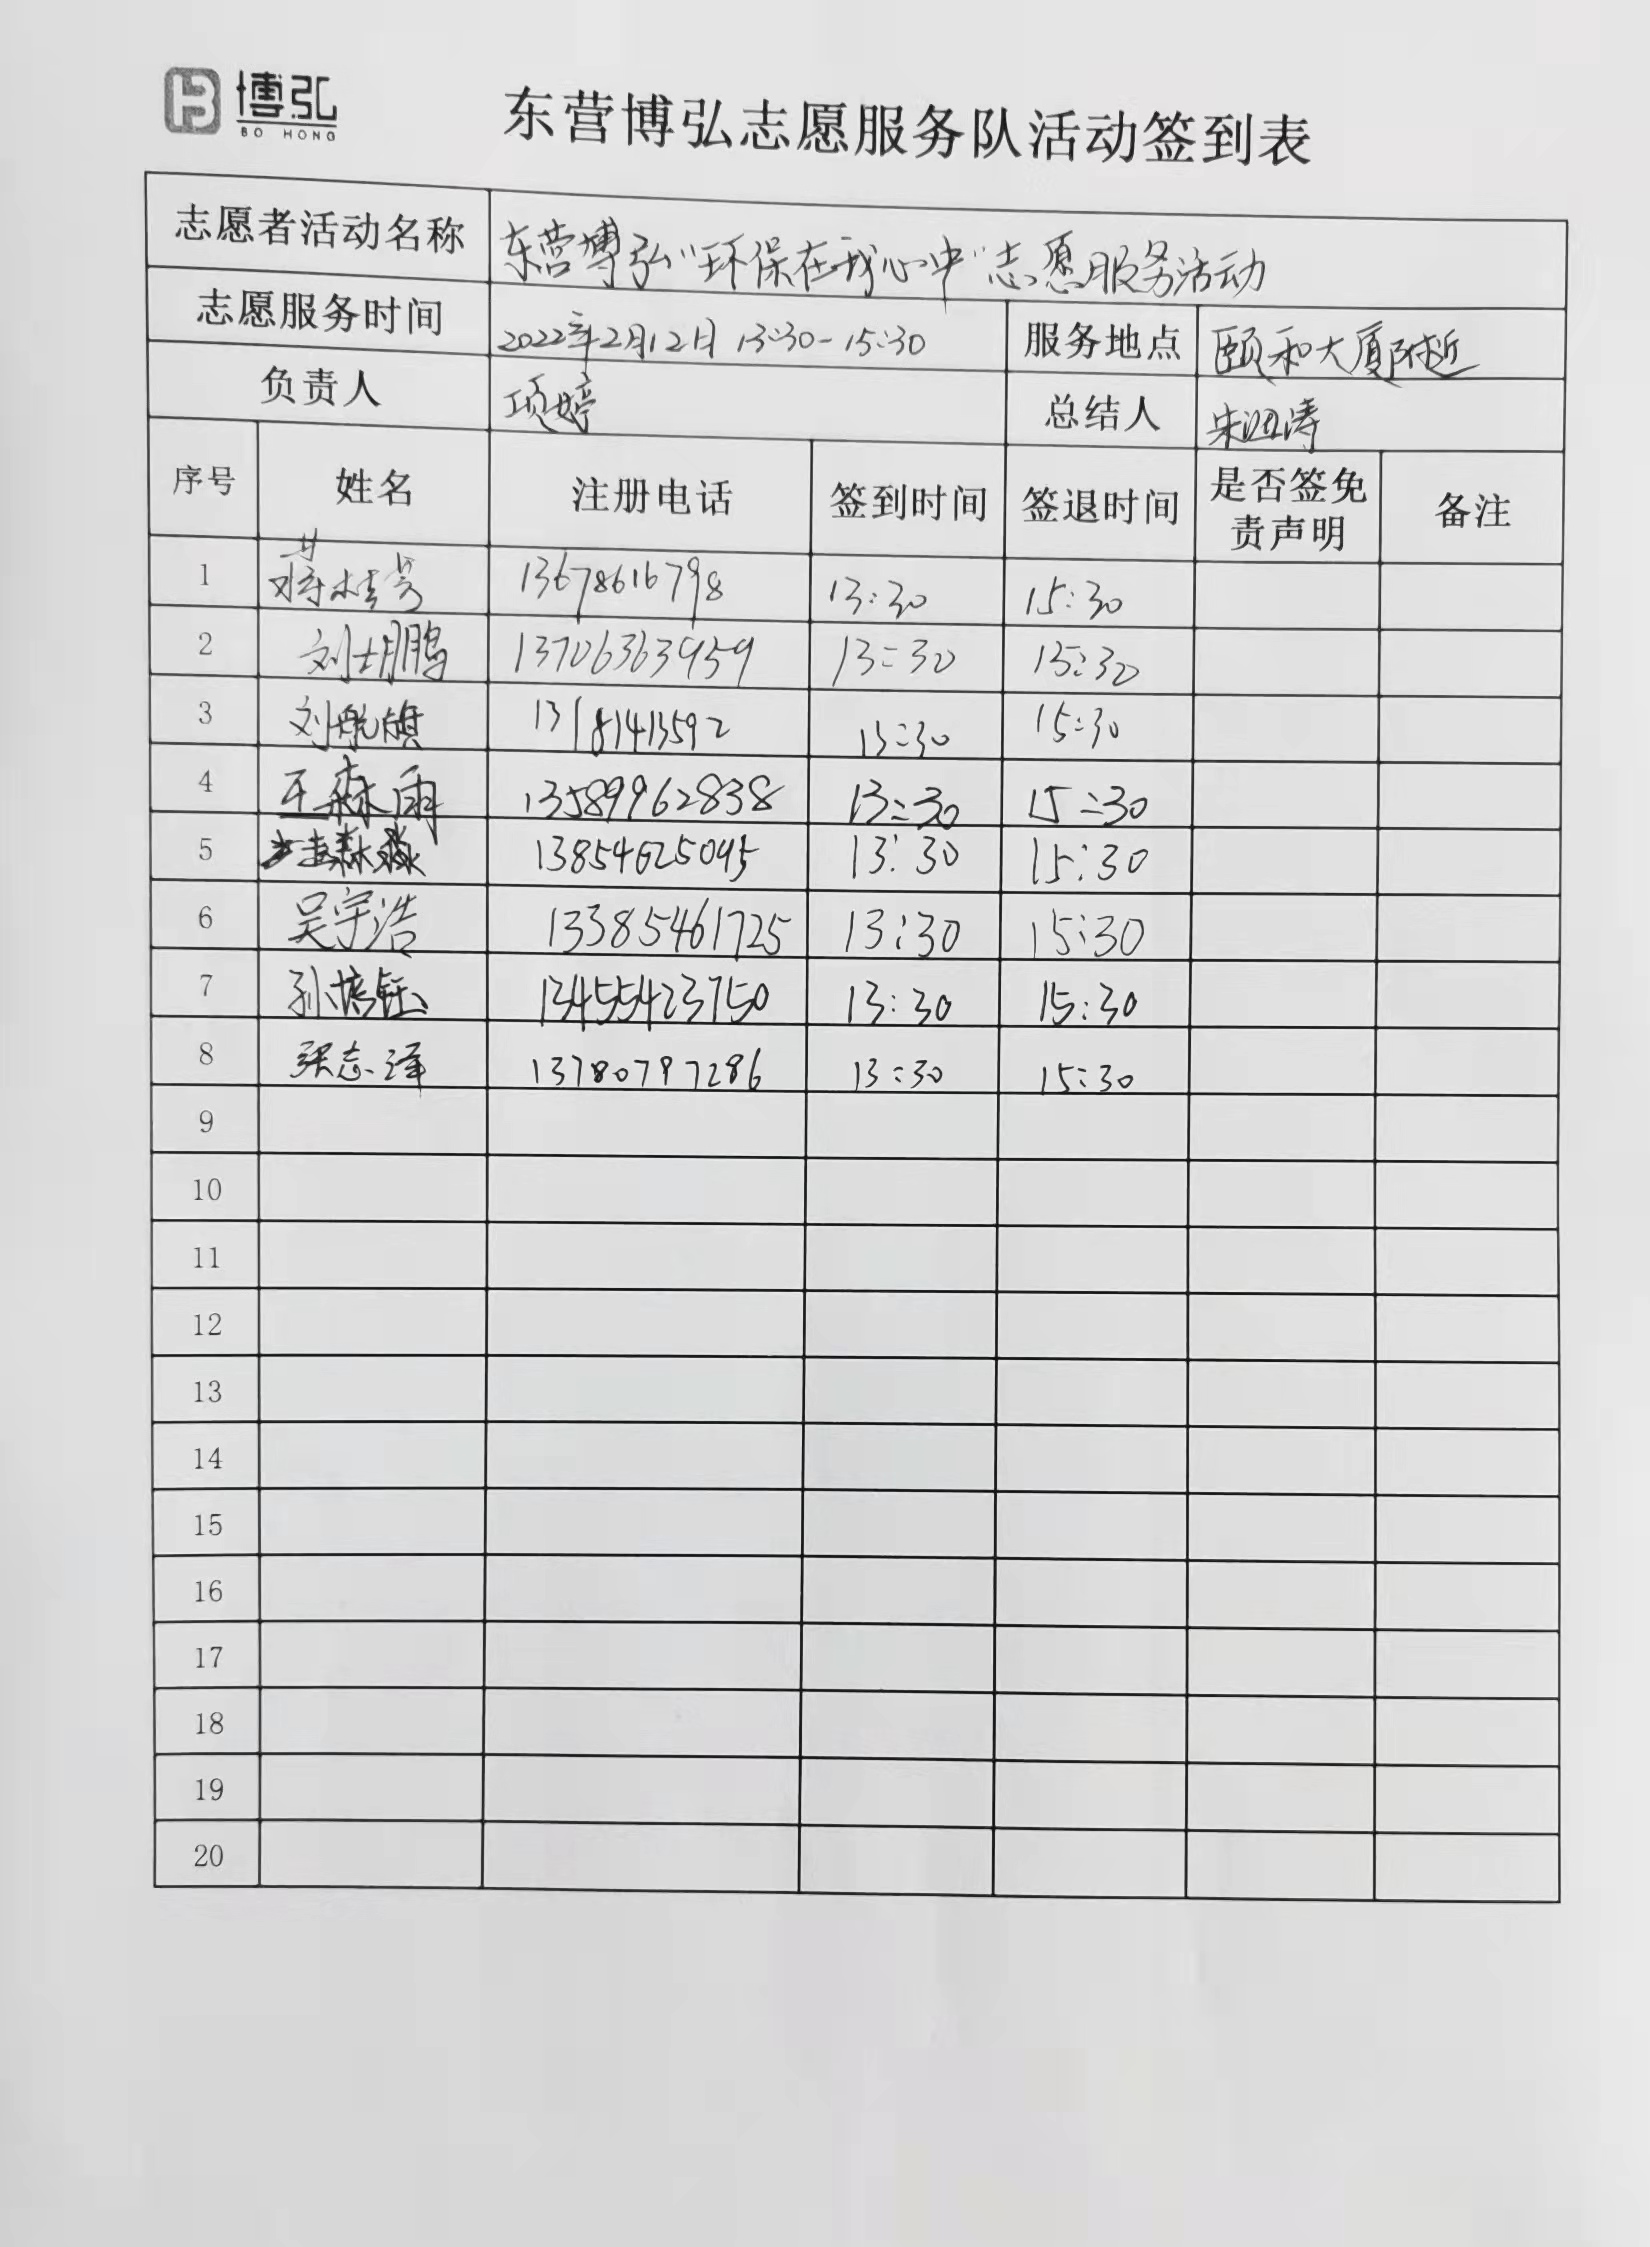 博弘
BO HONG
东营博弘志愿服务队活动签到表
志愿者活动名称 东营博弘“环保在我心中”志愿服务活动
志愿服务时间 2022年2月12日 13:30-15:30 服务地点 颐和大厦附近
负责人 项婷 总结人 朱涛
序号 姓名 注册电话 签到时间 签退时间 是否签免责声明 备注
1 蒋桂芳 13678616798 13:30 15:30
2 刘士鹏 13706363959 13:30 15:30
3 刘航旗 13181413592 13:30 15:30
4 王森雨 13589962838 13:30 15:30
5 13854625045 13:30 15:30
6 吴宇浩 13385461725 13:30 15:30
7 孙培钰 13455423750 13:30 15:30
8 张志泽 13780797286 13:30 15:30
9
10
11
12
13
14
15
16
17
18
19
20